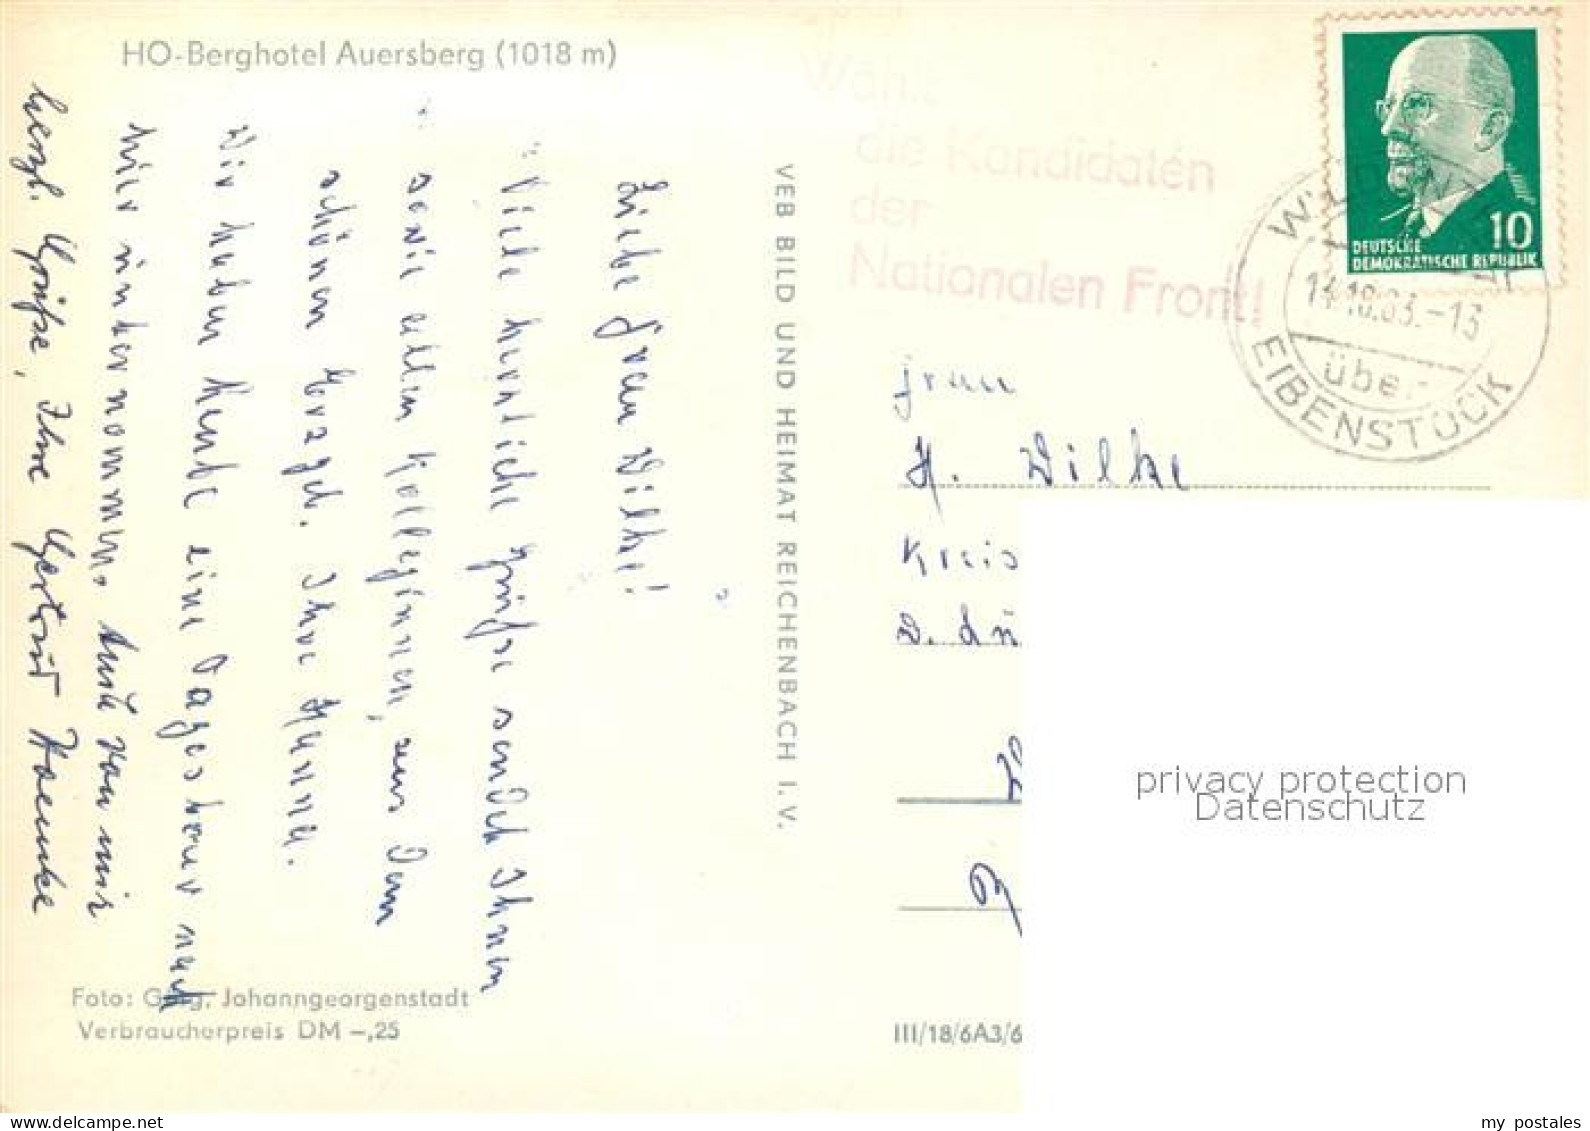 HO-Berghotel Auersberg (1018 m)
Liebe Frau Wilke!
Viele herzliche Grüße sendet Ihnen
sowie allen Kolleginnen, aus dem
schönen Erzgeb. Ihre Hanna.
Wir haben heute eine Tagestour nach
hier unternommen. Auch von mir
herzl. Grüße, Ihre Gertrud
Foto: Görg, Johanngeorgenstadt
Verbraucherpreis DM –,25
VEB BILD UND HEIMAT REICHENBACH I. V.
Wählt
die Kandidaten
der
Nationalen Front!
10
DEUTSCHE
DEMOKRATISCHE REPUBLIK
über
EIBENSTOCK
Frau
H. Wilke
Kreis
III/18/6A3/6
privacy protection
Datenschutz
my postales